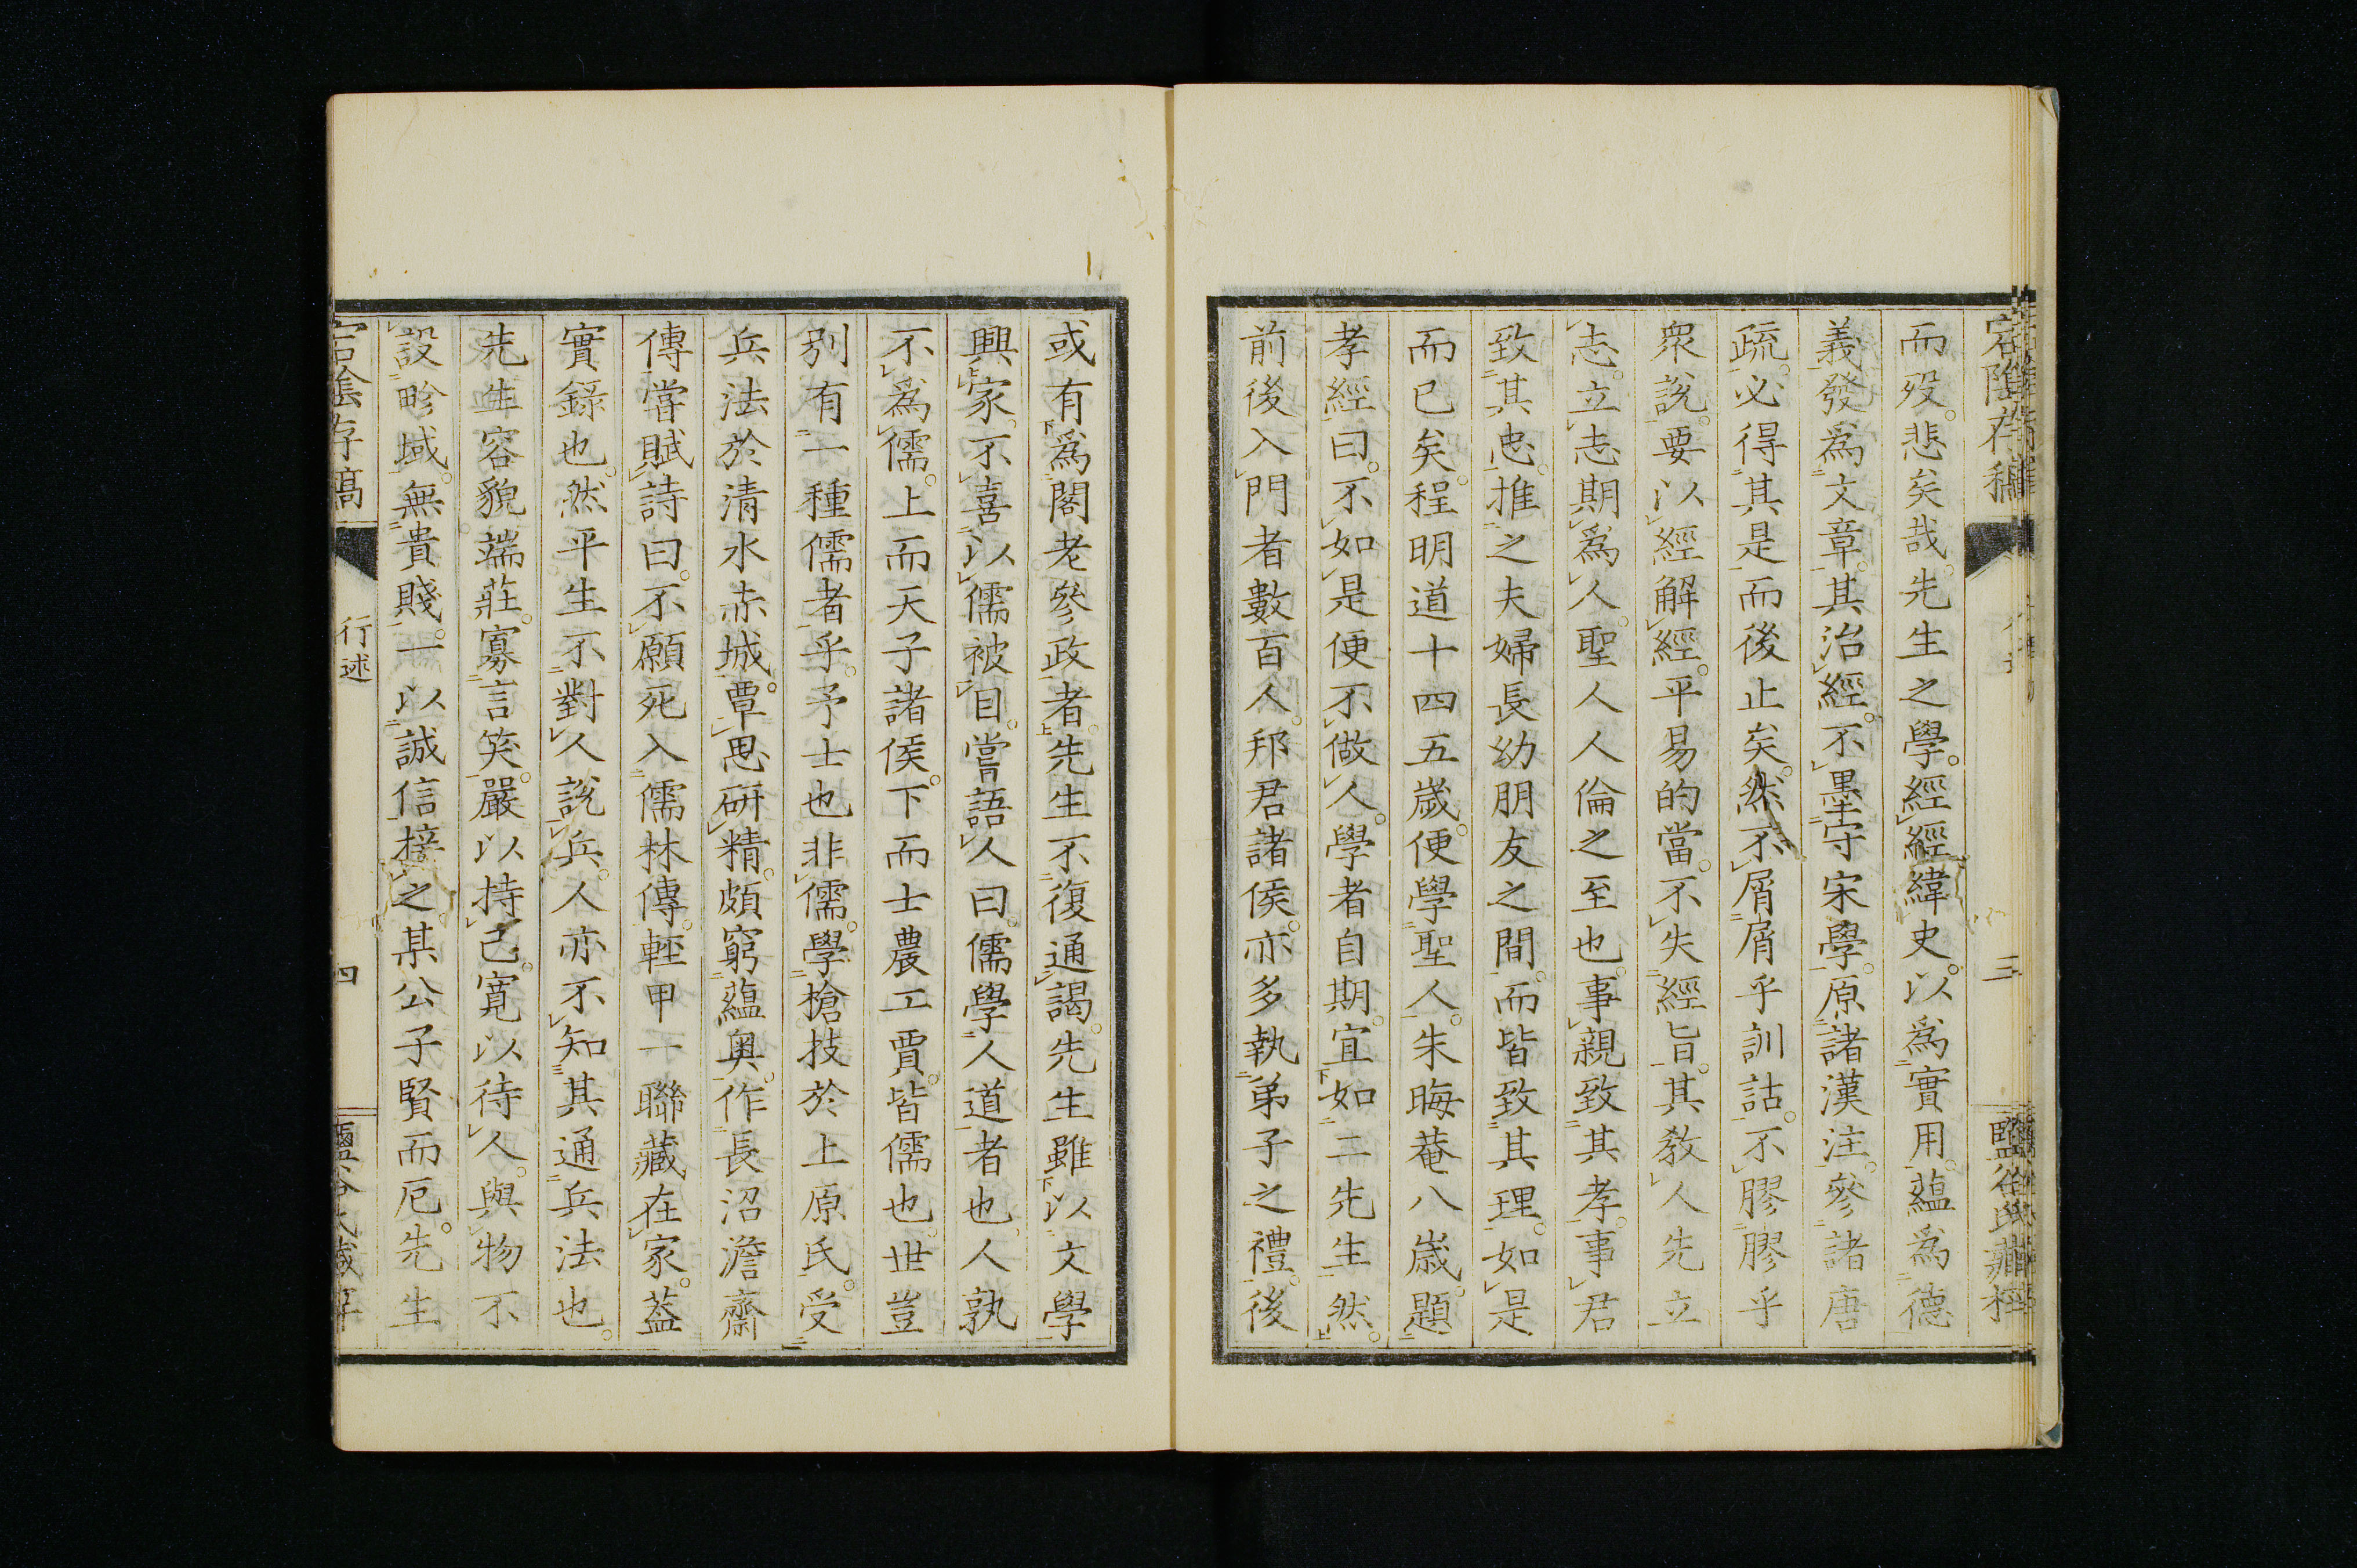 宕陰存稿
三
鹽谷氏藏梓
而歿。悲矣哉。先生之學。經經緯史。以爲實用。蘊爲德
義發爲文章。其治經。不墨守宋學。原諸漢注。參諸唐
疏。必得其是而後止矣。然不屑屑乎訓詁。不膠膠乎
衆說。要以經解經。平易的當。不失經旨。其敎人先立
志。立志期爲人。聖人人倫之至也。事親致其孝。事君
致其忠。推之夫婦長幼朋友之間。而皆致其理。如是
而已矣。程明道十四五歲。便學聖人。朱晦菴八歲。題
孝經曰。不如是便不做人。學者自期。宜如二先生然。
前後入門者數百人。邦君諸侯。亦多執弟子之禮。後
或有爲閣老參政者。先生不復通謁。先生雖以文學
興家。不喜以儒被目。嘗語人曰。儒學人道者也。人孰
不爲儒。上而天子諸侯。下而士農工賈。皆儒也。世豈
別有一種儒者乎。予士也非儒。學槍技於上原氏。受
兵法於清水赤城。覃思研精。頗窮蘊奧。作長沼澹齋
傳。嘗賦詩曰。不願死入儒林傳。輕甲一聯藏在家。葢
實錄也。然平生不對人說兵。人亦不知其通兵法也。
先生容貌端莊。寡言笑。嚴以持己。寬以待人。與物不
設畛域。無貴賤。一以誠信接之。某公子賢而厄。先生
宕陰存稿
行述
四